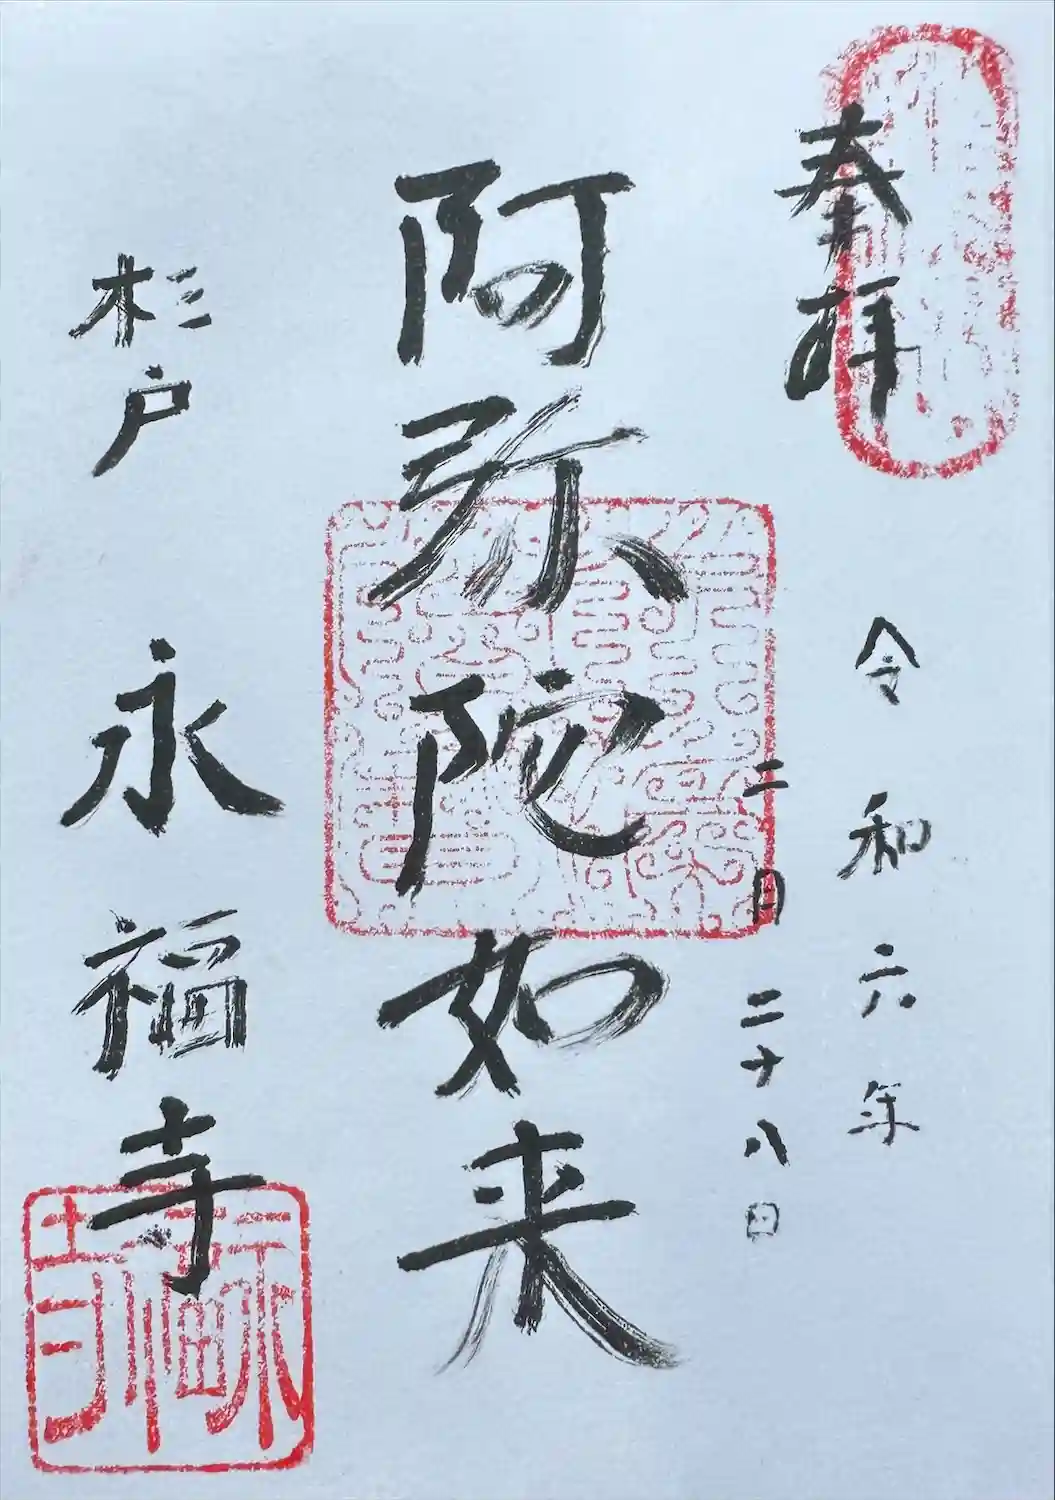 奉拝
令和六年
二月二十八日
阿弥陀如来
杉戸
永福寺
永福寺